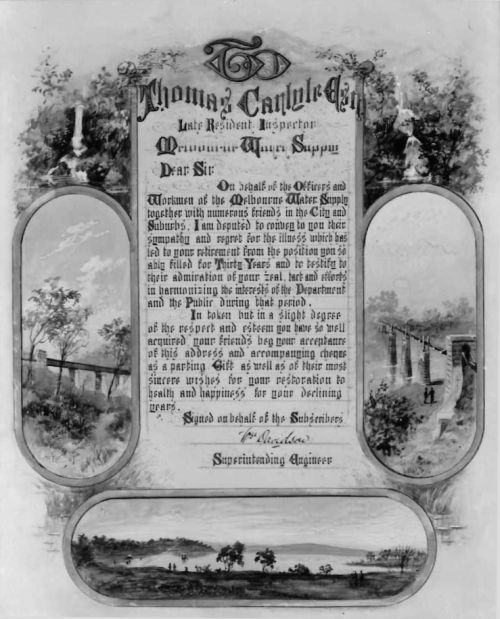 To
Thomas Carlyle Esq
Late Resident Inspector
Melbourne Water Supply
Dear Sir
On behalf of the Officers and
Workmen of the Melbourne Water Supply
together with numerous friends in the City and
Suburbs, I am deputed to convey to you their
sympathy and regret for the illness which has
led to your retirement from the position you so
ably filled for Thirty Years and to testify to
their admiration of your zeal, tact and efforts
in harmonizing the interests of the Department
and the Public during that period.
In token but in a slight degree
of the respect and esteem you have so well
acquired your friends beg your acceptance
of this address and accompanying cheque
as a parting Gift as well as of their most
sincere wishes for your restoration to
health and happiness for your declining
years.
Signed on behalf of the Subscribers
Wm Davidson
Superintending Engineer